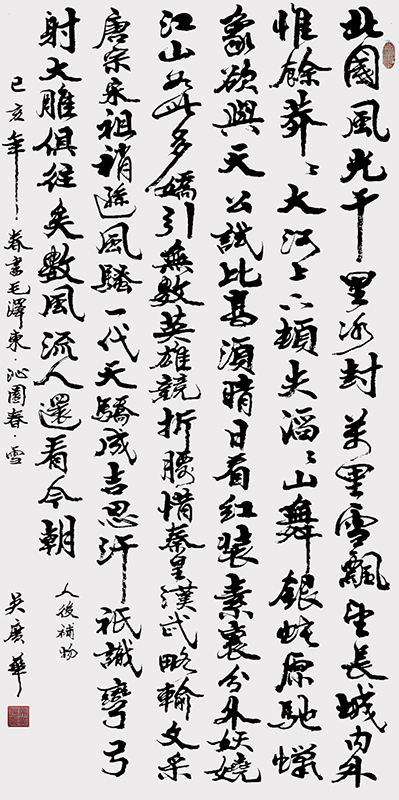 北國風光千里冰封萬里雪飄望長城內外
惟餘莽々大河上下頓失滔々山舞銀蛇原馳蠟
象欲與天公試比高須晴日看紅装素裹分外妖嬈
江山如此多嬌引無數英雄競折腰惜秦皇漢武略輸文采
唐宗宋祖稍遜風騷一代天驕成吉思汗祇識彎弓
射大雕俱往矣數風流人還看今朝
己亥年春書毛澤東·沁園春·雪
人後補物
吴廣華